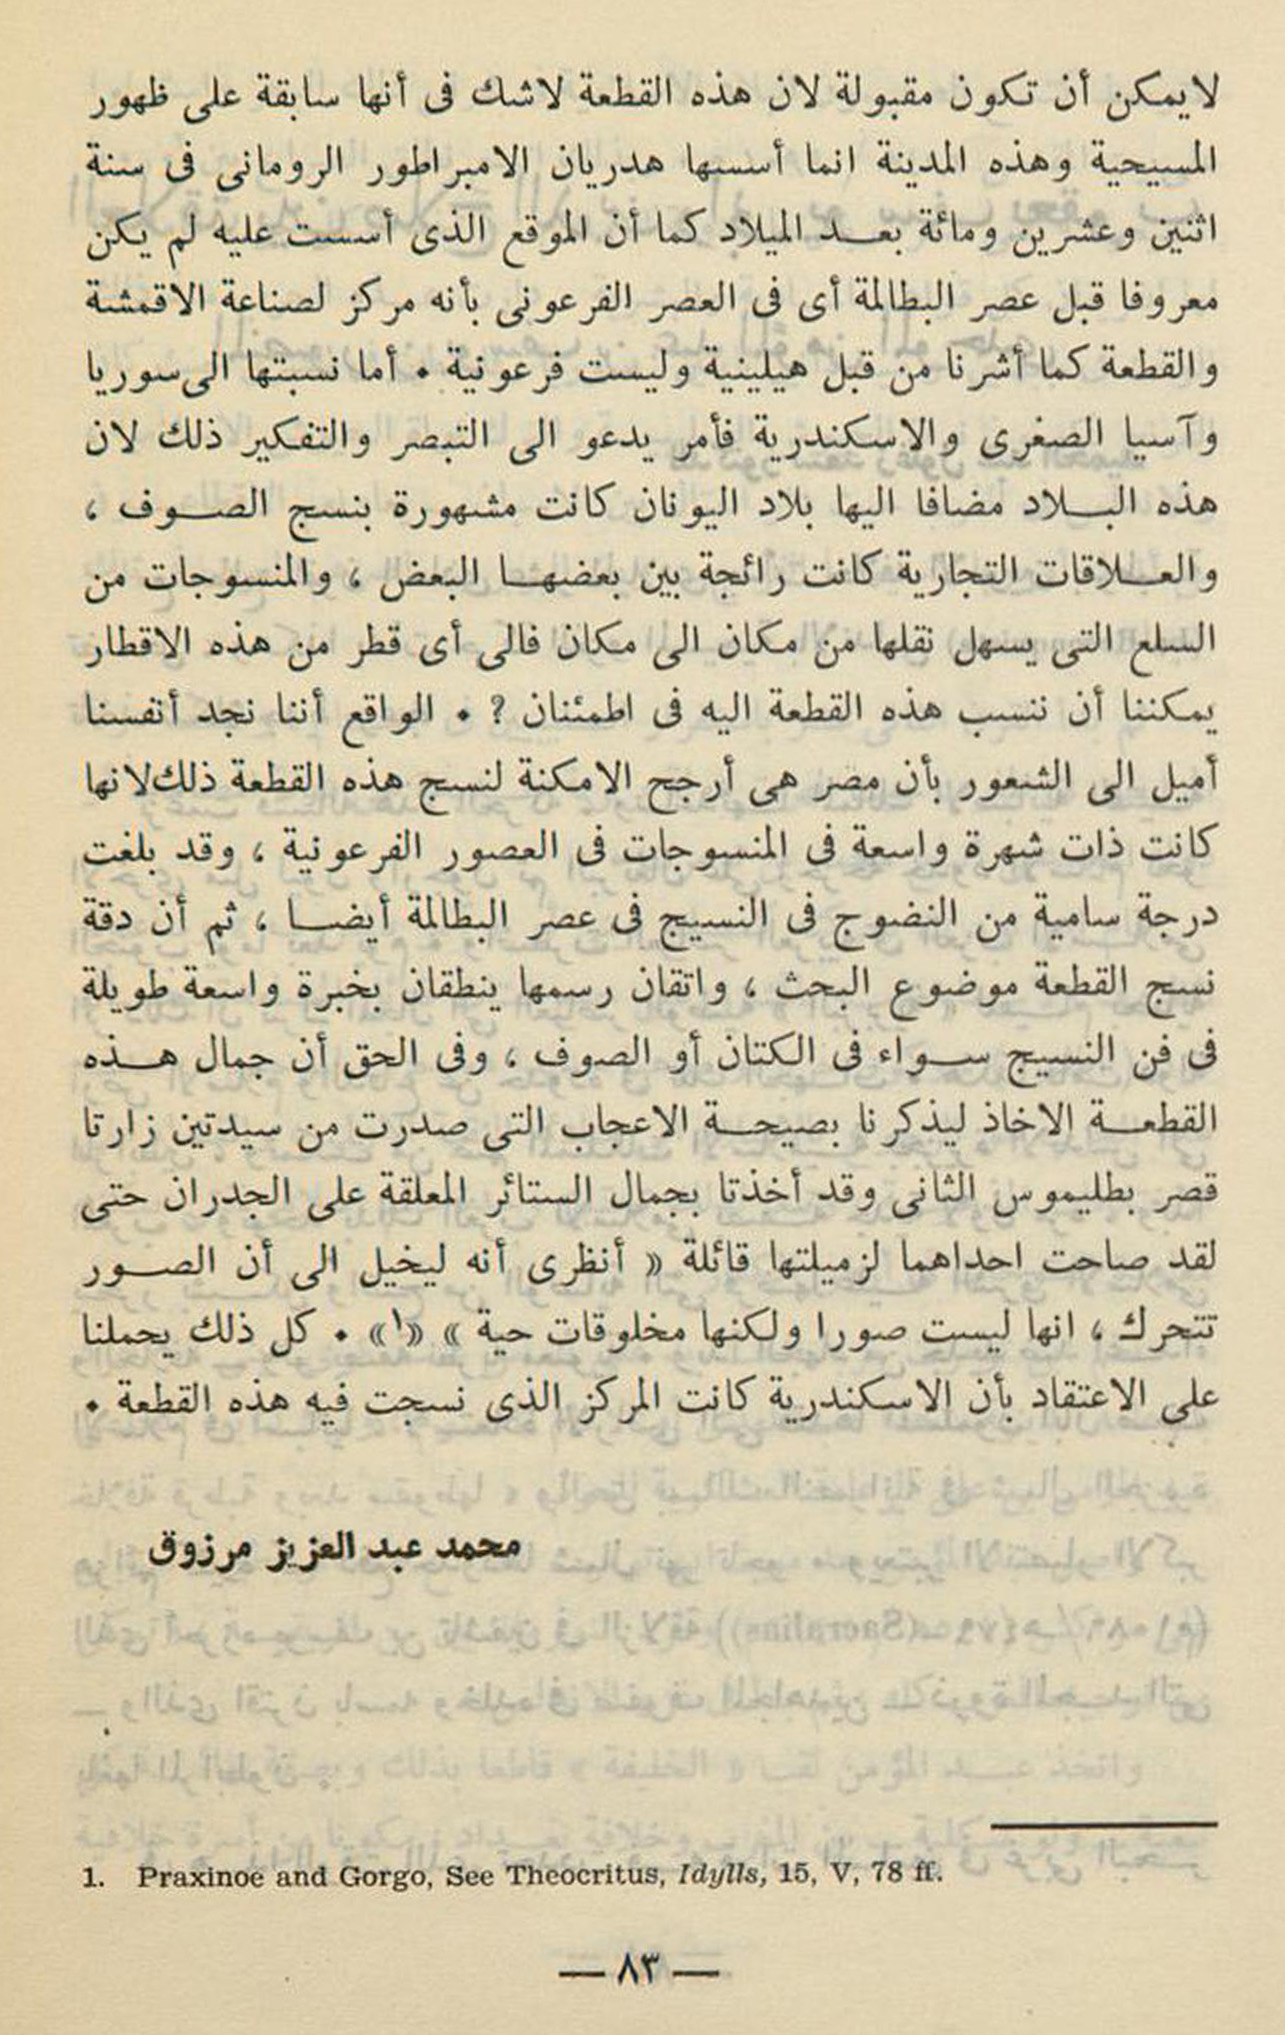 لايمكن أن تكون مقبولة لان هذه القطعة لاشك فى أنها سابقة على ظهور
المسيحية وهذه المدينة انما أسسها هدريان الامبراطور الرومانى فى سنة
اثنين وعشرين ومائة بعـد الميلاد كما أن الموقع الذى أسست عليه لم يكن
معروفا قبل عصر البطالمة أى فى العصر الفرعونى بأنه مركز لصناعة الاقمشة
والقطعة كما أشرنا من قبل هيلينية وليست فرعونية • أما نسبتها الى سوريا
وآسيا الصغرى والاسكندرية فأمر يدعو الى التبصر والتفكير ذلك لان
هذه البـلاد مضافا اليها بلاد اليونان كانت مشهورة بنسج الصـوف ،
والعـلاقات التجارية كانت رائجة بين بعضهـا البعض ، والمنسوجات من
السلع التى يسهل نقلها من مكان الى مكان فالى أى قطر من هذه الاقطار
يمكننا أن ننسب هذه القطعة اليه فى اطمئنان ? • الواقع أننا نجد أنفسنا
أميل الى الشعور بأن مصر هى أرجح الامكنة لنسج هذه القطعة ذلك لانها
كانت ذات شهرة واسعة فى المنسوجات فى العصور الفرعونية ، وقد بلغت
درجة سامية من النضوج فى النسيج فى عصر البطالمة أيضـا ، ثم أن دقة
نسج القطعة موضوع البحث ، واتقان رسمها ينطقان بخبرة واسعة طويلة
فى فن النسيج سـواء فى الكتان أو الصوف ، وفى الحق أن جمال هـذه
القطعـة الاخاذ ليذكرنا بصيحـة الاعجاب التى صدرت من سيدتين زارتا
قصر بطليموس الثانى وقد أخذتا بجمال الستائر المعلقة على الجدران حتى
لقد صاحت احداهما لزميلتها قائلة « أنظرى أنه ليخيل الى أن الصـور
تتحرك ، انها ليست صورا ولكنها مخلوقات حية » «١» • كل ذلك يحملنا
على الاعتقاد بأن الاسكندرية كانت المركز الذى نسجت فيه هذه القطعة •
محمد عبد العزيز مرزوق
1. Praxinoe and Gorgo, See Theocritus, Idylls, 15, V, 78 ff.
— ٨٣ —